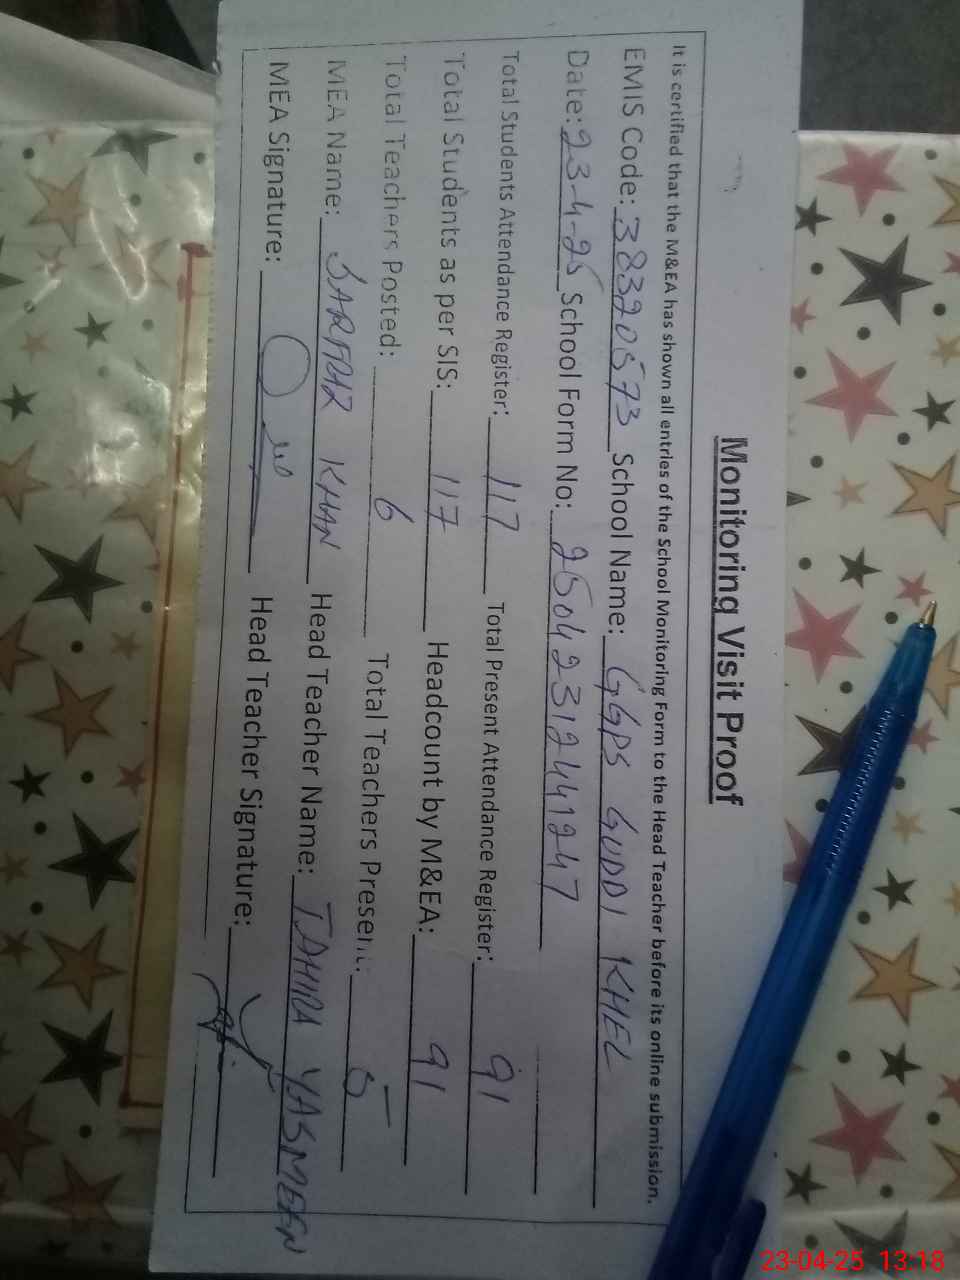 Monitoring Visit Proof
It is certified that the M&EA has shown all entries of the School Monitoring Form to the Head Teacher before its online submission.
EMIS Code: 38320573 School Name: GGPS GUDDI KHEL
Date: 23-4-25 School Form No: 25042312441247
Total Students Attendance Register: 117 Total Present Attendance Register: 91
Total Students as per SIS: 117 Headcount by M&EA: 91
Total Teachers Posted: 6 Total Teachers Present: 5
MEA Name: SARFRAZ KHAN Head Teacher Name: TAHIRA YASMEEN
MEA Signature: Head Teacher Signature:
23-04-25 13:18